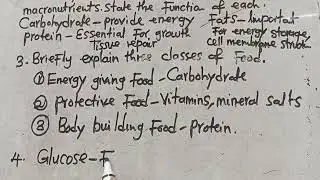 macronutrients. State the Function of each.
Carbohydrate - provide energy Fats - Important
protein - Essential For growth For energy storage,
tissue repair cell membrane struct
3. Briefly explain three classes of Food.
① Energy giving Food - Carbohydrate
② Protective Food - Vitamins, mineral salts
③ Body building Food - protein.
4. Glucose - F